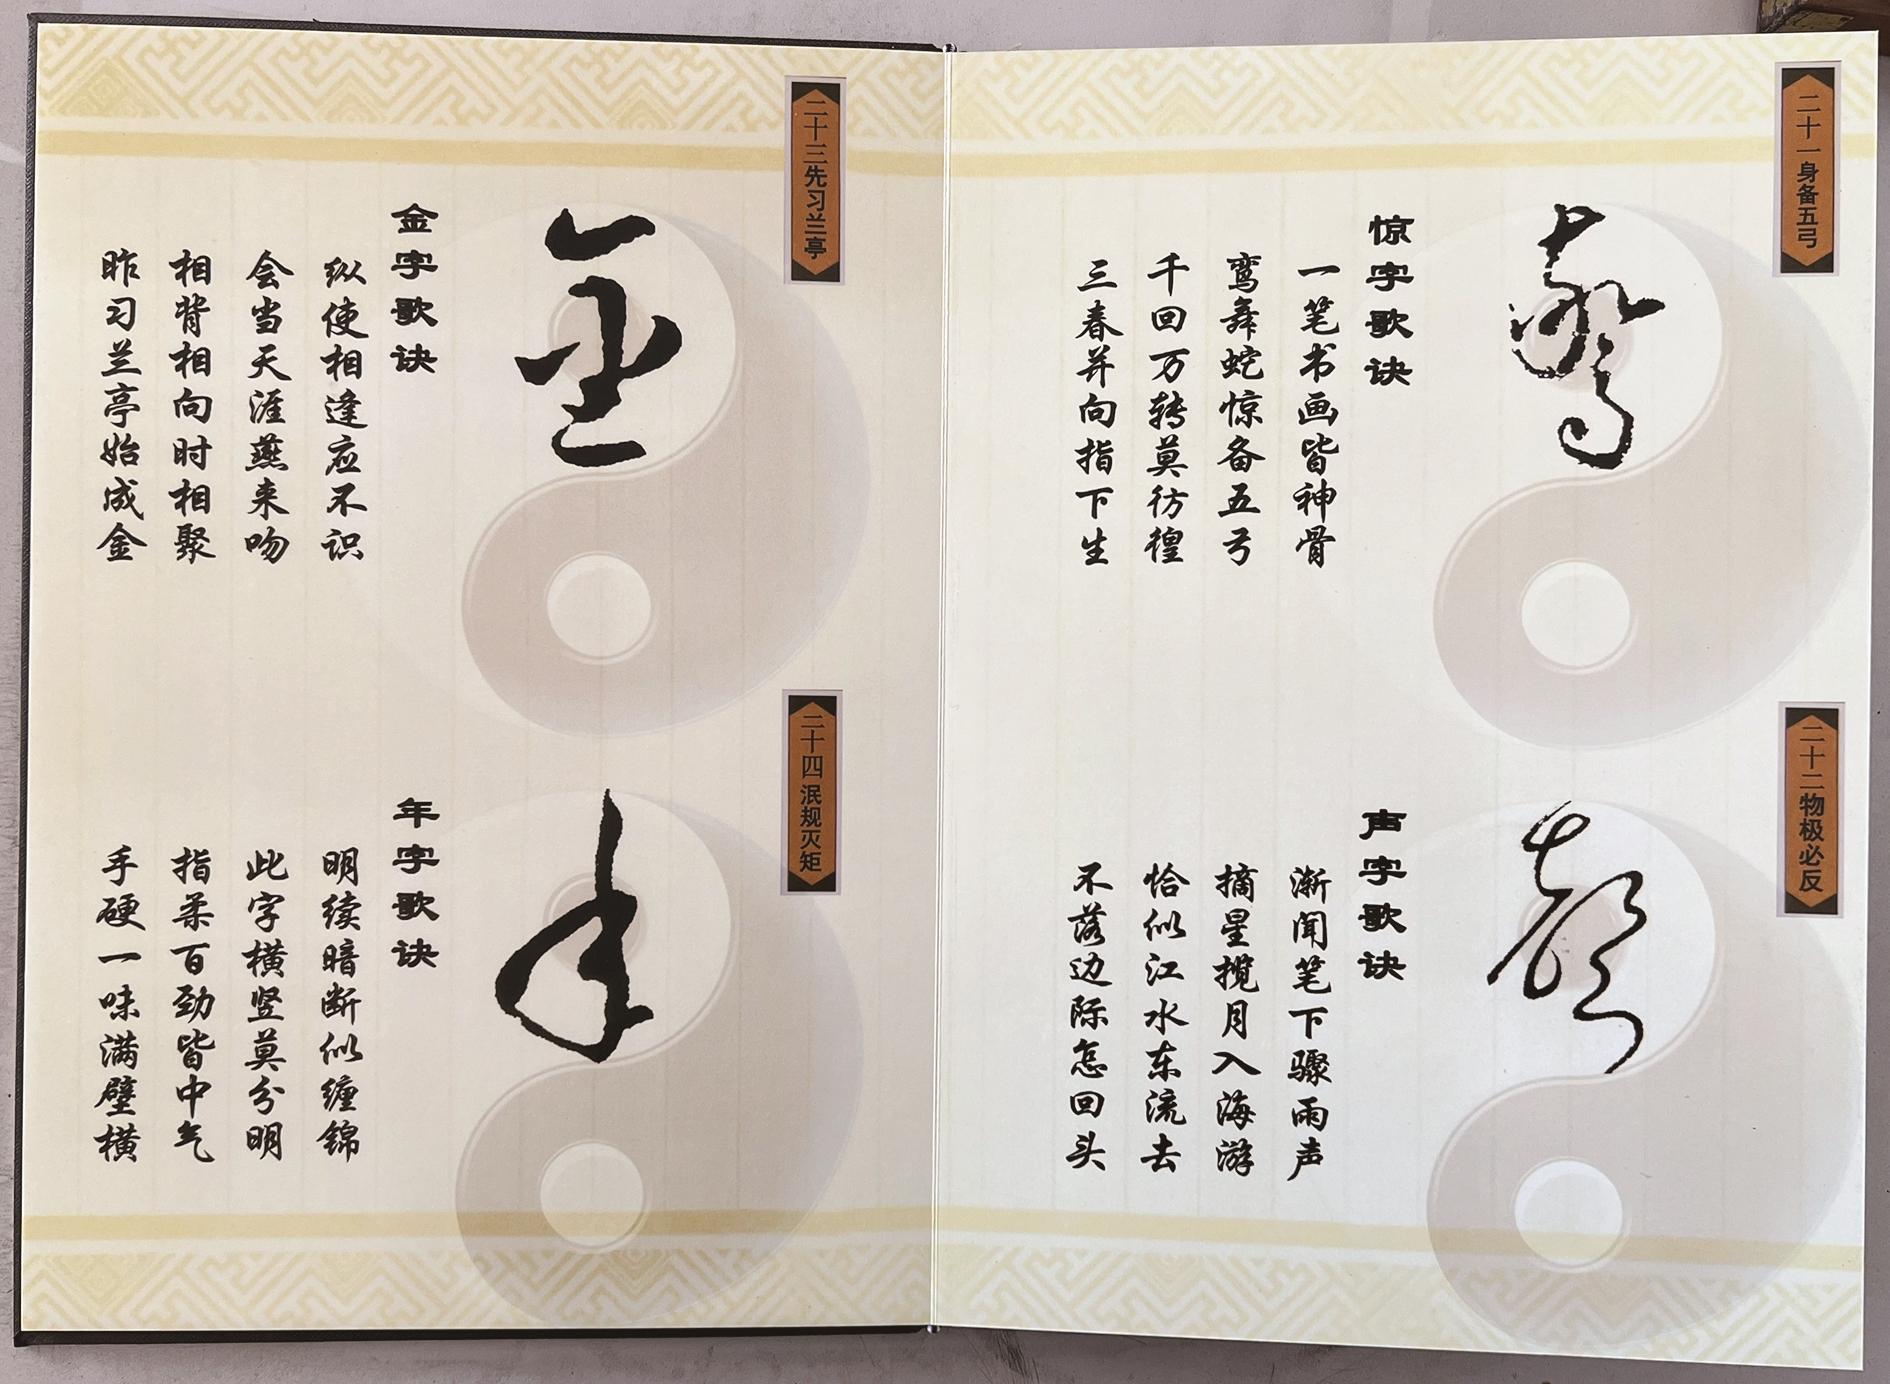 二十一身备五弓
惊字歌诀
一笔书画皆神骨
鸾舞蛇惊备五弓
千回万转莫彷徨
三春并向指下生
二十二物极必反
声字歌诀
渐闻笔下骤雨声
摘星揽月入海游
恰似江水东流去
不落边际怎回头
二十三先习兰亭
金
金字歌诀
纵使相逢应不识
会当天涯燕来吻
相背相向时相聚
昨习兰亭始成金
二十四泯规灭矩
年
年字歌诀
明续暗断似缠锦
此字横竖莫分明
指柔百劲皆中气
手硬一味满壁横